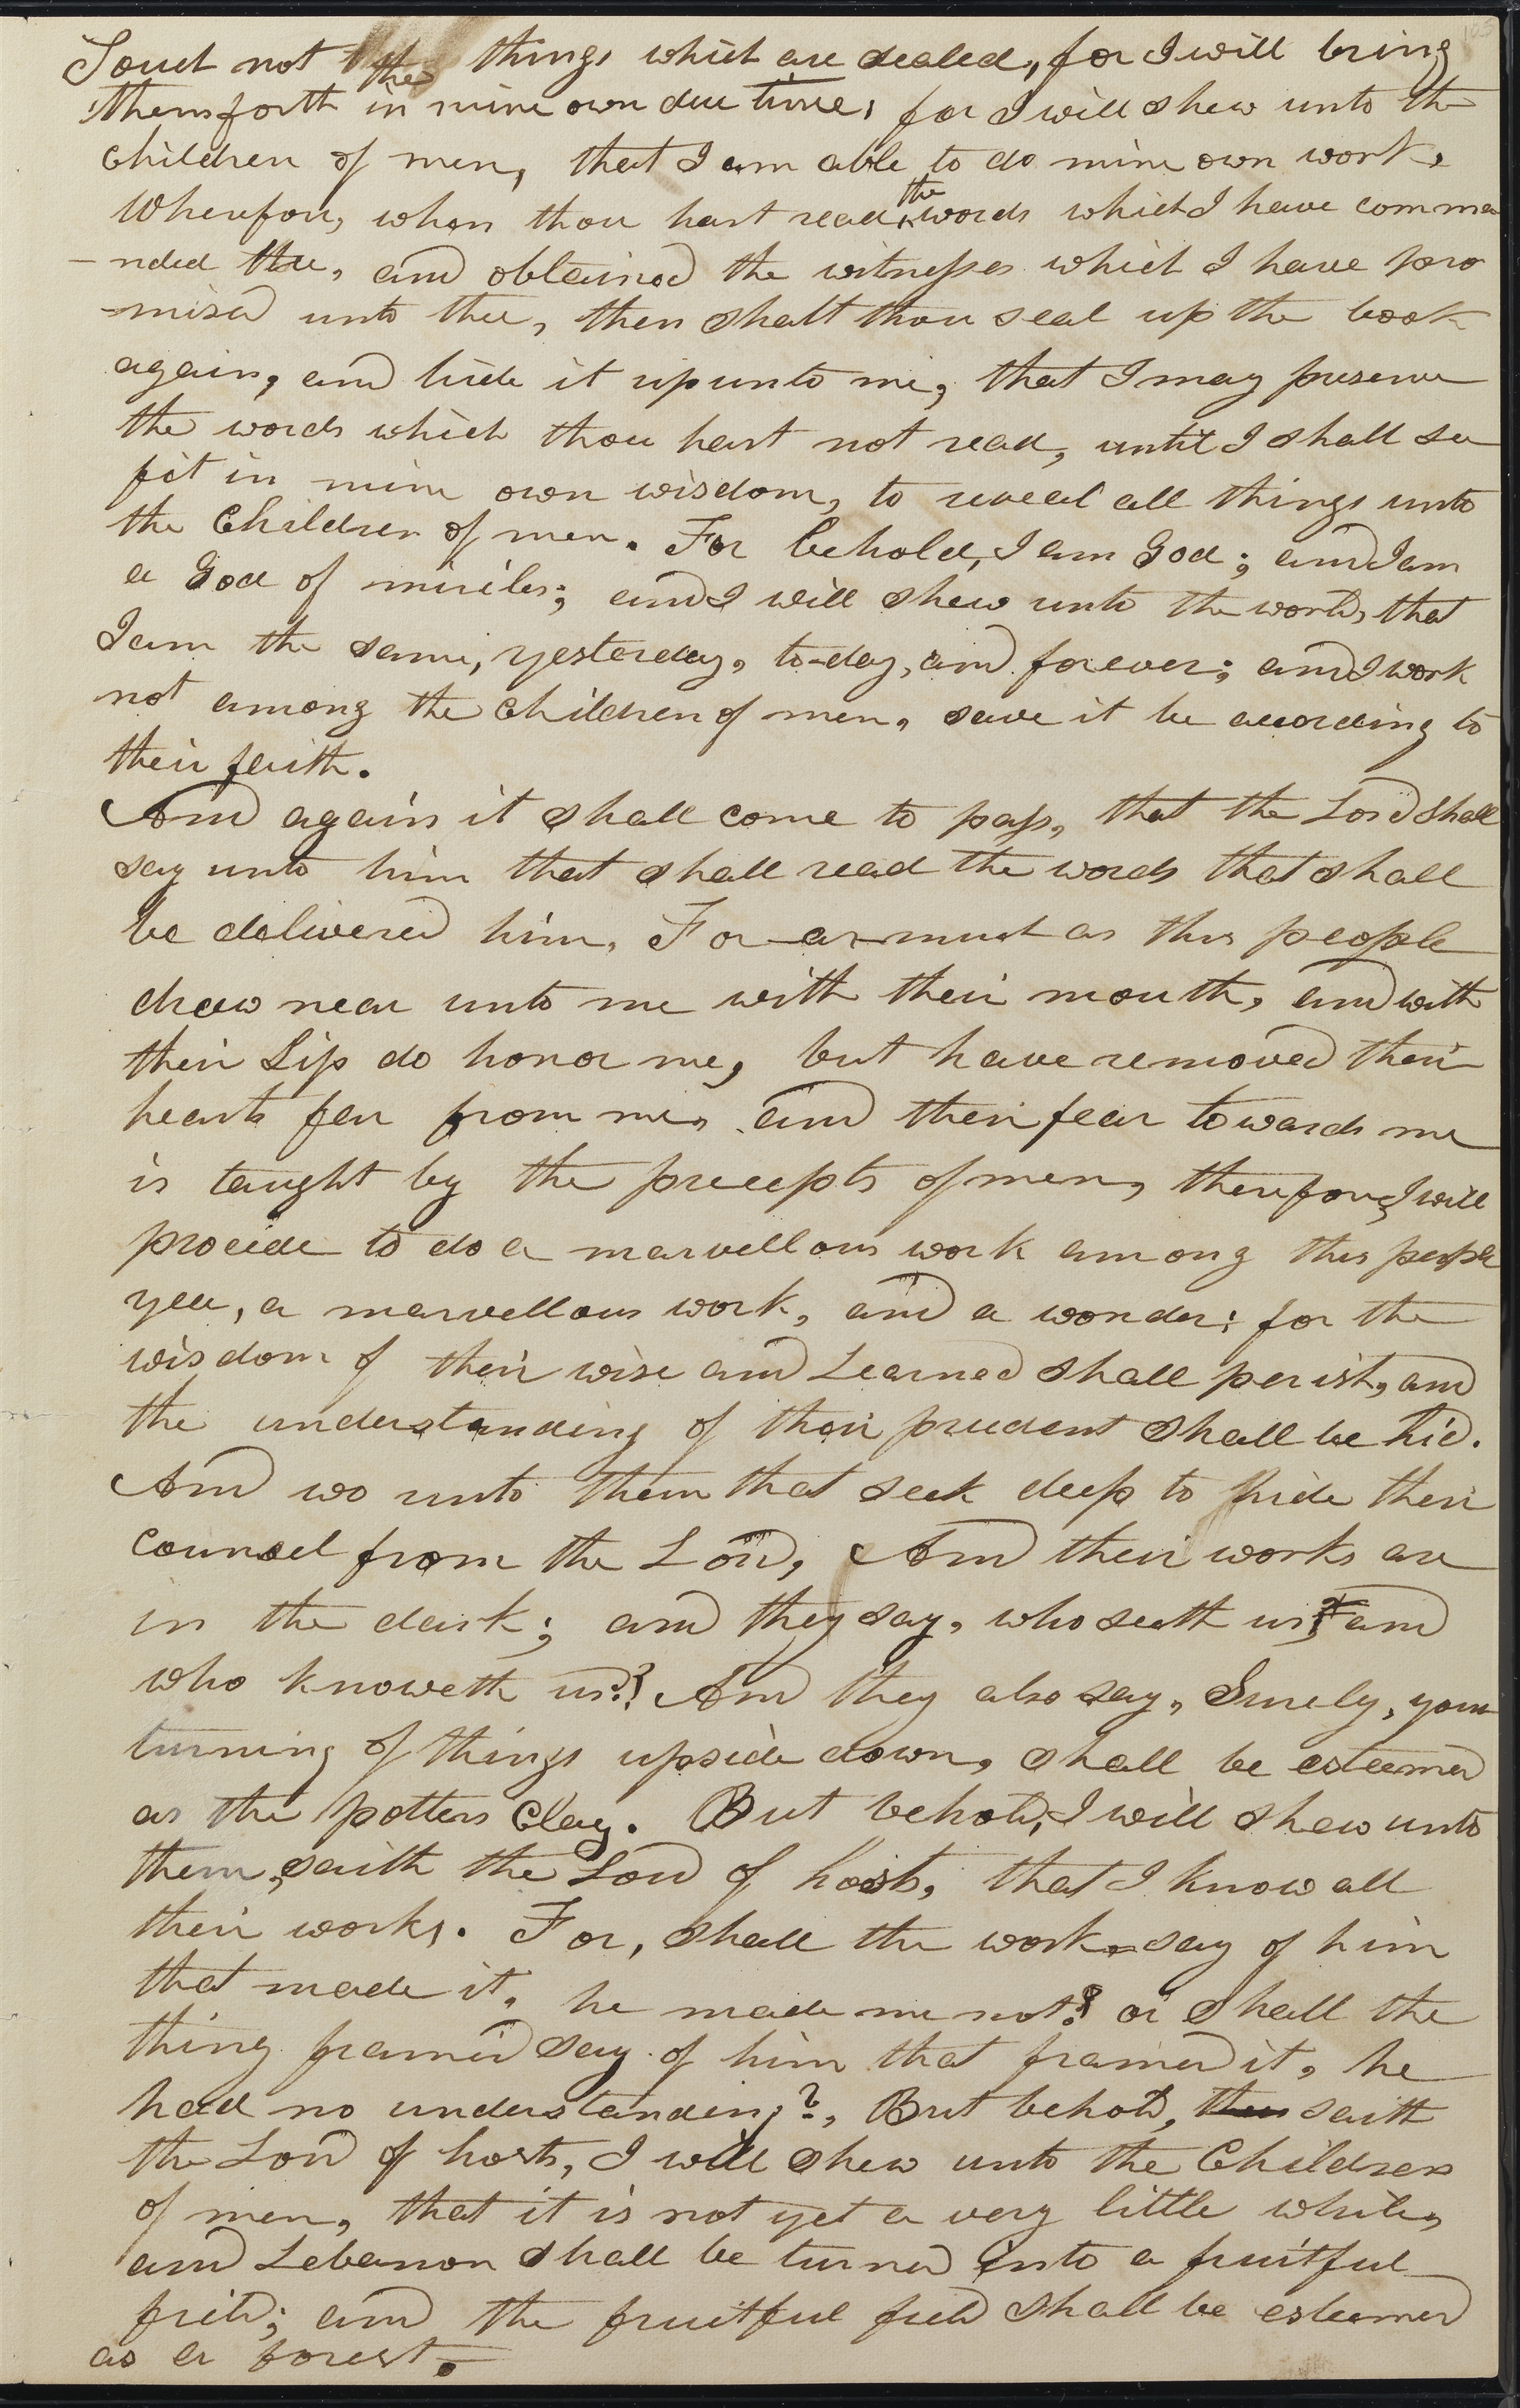 Touch not the things which are sealed, for I will bring
them forth in mine own due time; for I will shew unto the
Children of men, that I am able to do mine own work,
Wherefore, when thou hast read the words which I have comma
-nded thee, and obtained the witnesses which I have pro
-mised unto thee, then shalt thou seal up the book
again, and hide it up unto me, that I may preserve
the words which thou hast not read, until I shall see
fit in mine own wisdom, to reveal all things unto
the Children of men. For behold, I am God; and I am
a God of miricles; and I will shew unto the world, that
I am the same, yesterday, to-day, and forever; and I work
not among the Children of men, save it be according to
their faith.
And again it shall come to pass, that the Lord shall
say unto him that shall read the words that shall
be delivered him, For-as-much as this people
draw near unto me with their mouth, and with
their Lip do honor me, but have removed their
hearts far from me, and their fear towards me
is taught by the precepts of men, therefore, I will
proceide to do a marvellous work among this people
yea, a marvellous work, and a wonder; for the
wisdom of their wise and Learned shall perish, and
the understanding of their prudent shall be hid.
And wo unto them that seek deep to hide their
counsel from the Lord, And their works are
in the dark; and they say, who seeth us, and
who knoweth us?! And they also say, Surely, your
turning of things upside down, shall be esteemed
as the potters Clay. But behold, I will shew unto
them, saith the Lord of hosts, that I know all
their works. For, shall the work say of him
that made it, he made me not? or shall the
thing framed say of him that framed it, he
had no understanding?, But behold, saith
the Lord of hosts, I will shew unto the Children
of men, that it is not yet a very little while,
and Lebanon shall be turned into a fruitful
field; and the fruitful field shall be esteemed
as a forest.